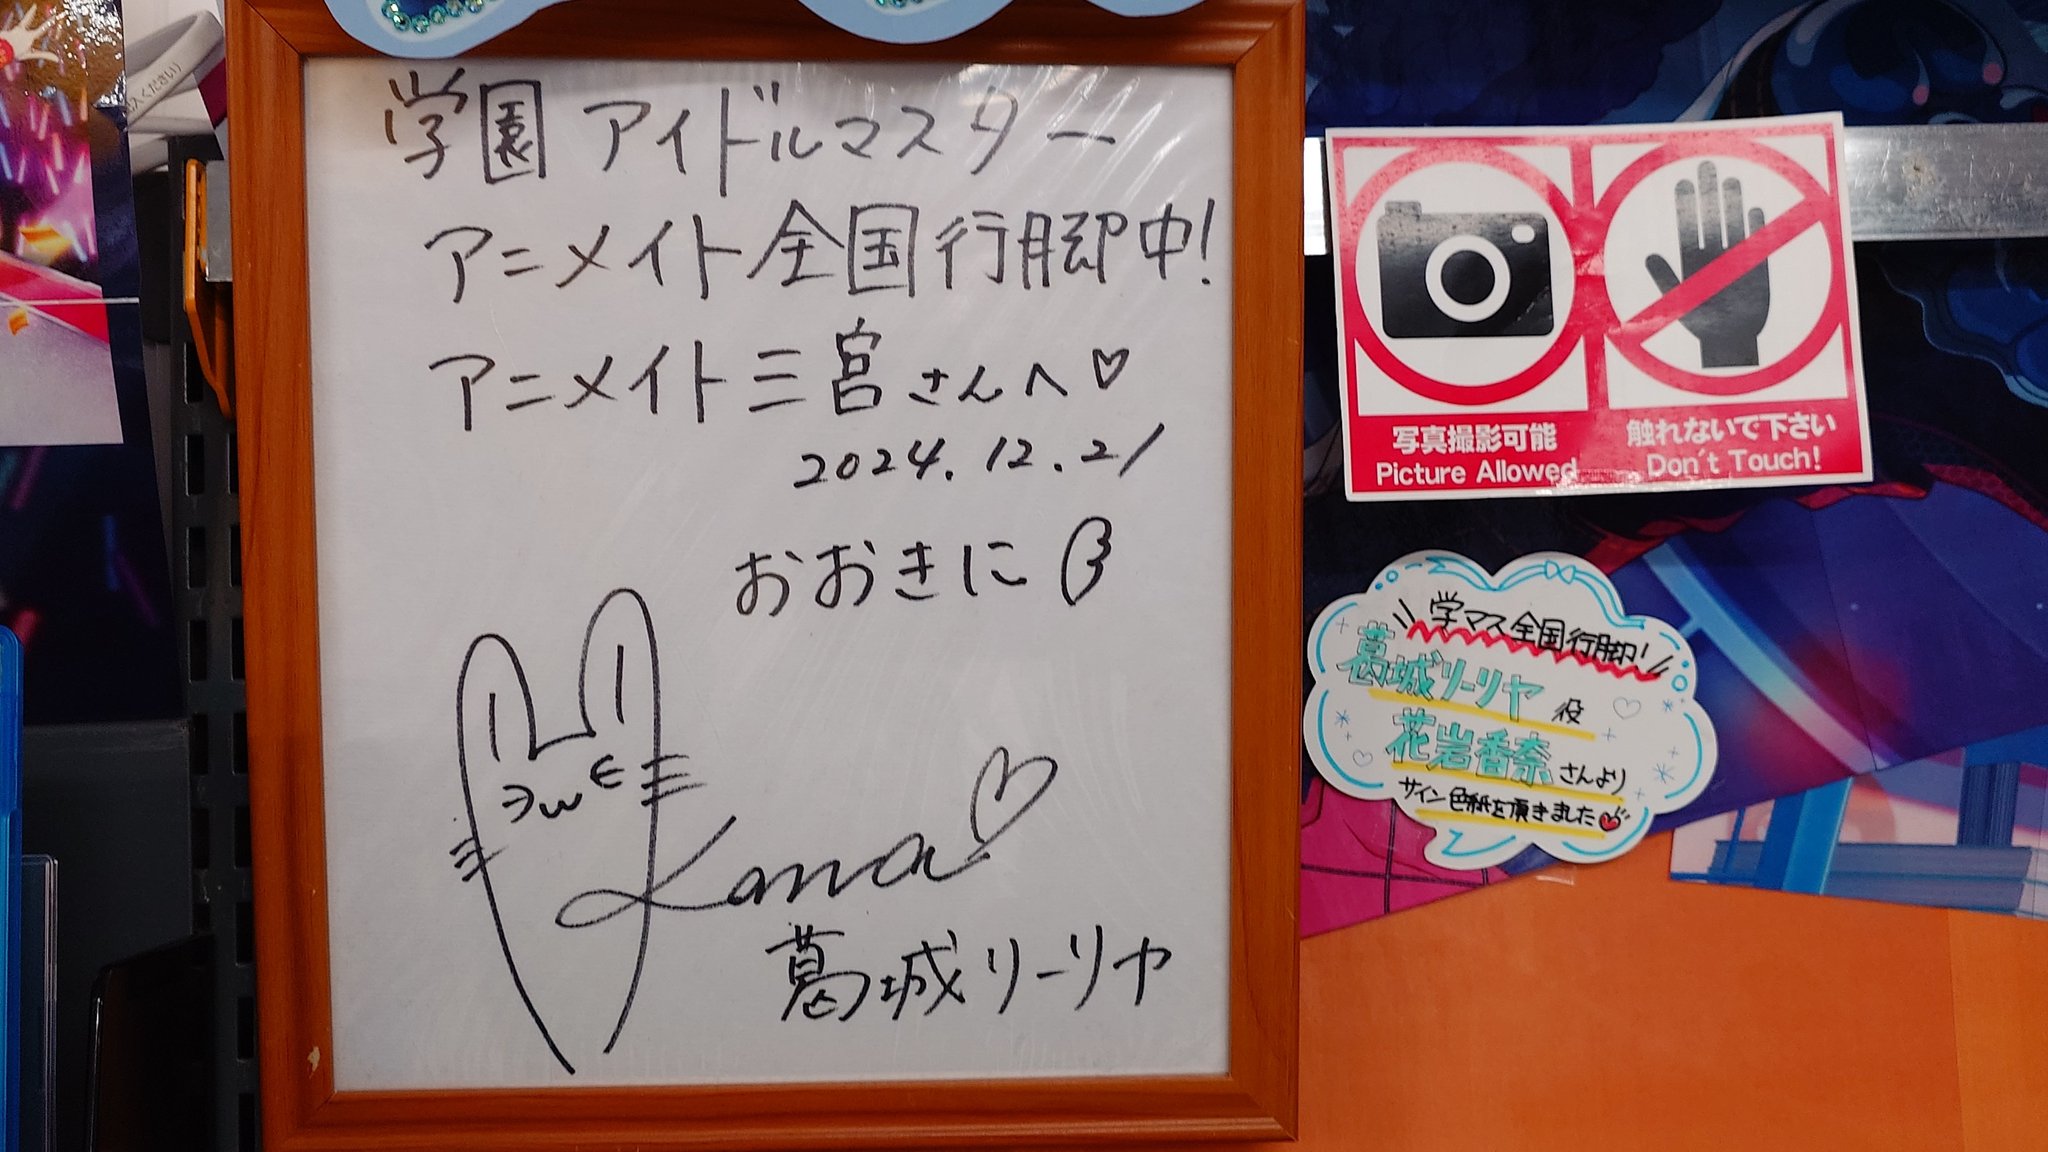 学園アイドルマスター
アニメイト全国行脚中!
アニメイト三宮さんへ♡
2024.12.21
おおきに
Kana
葛城リーリヤ
写真撮影可能
Picture Allowed
触れないで下さい
Don't Touch!
学マス全国行脚!
葛城リーリヤ役
花岩香奈さんより
サイン色紙を頂きました
入ください)